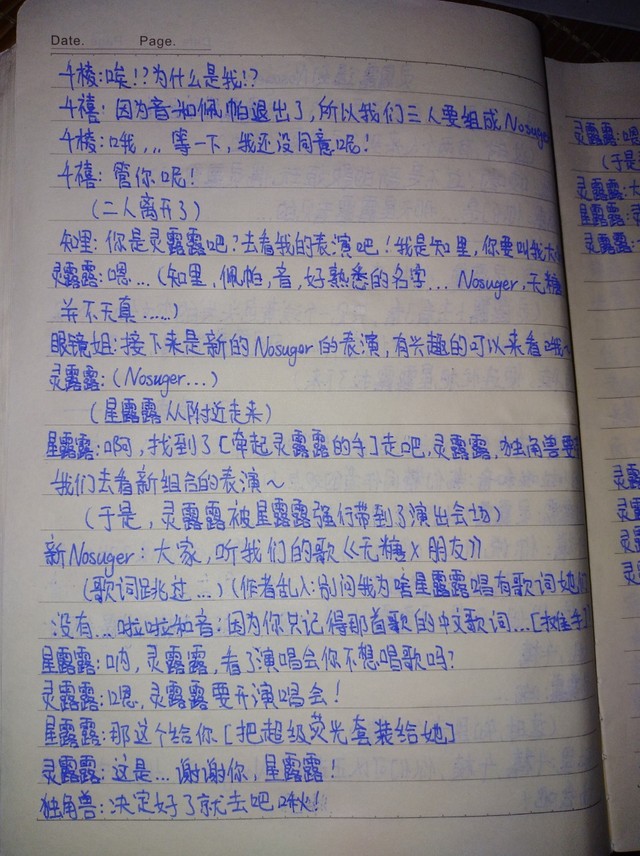 Date. Page.
千棱:唉!?为什么是我!?
千禧:因为音和佩帕退出了,所以我们三人要组成Nosugar
千棱:哦,..等一下,我还没同意呢!
千禧:管你呢!
(二人离开了)
知里:你是灵露露吧?去看我的表演吧!我是知里,你要叫我大
灵露露:嗯...(知里,佩帕,音,好熟悉的名字...Nosuger,无糖
并不天真......)
眼镜姐:接下来是新的Nosugar的表演,有兴趣的可以来看哦~
灵露露:(Nosuger...)
(星露露从附近走来)
星露露:啊,找到了[牵起灵露露的手]走吧,灵露露,独角兽要
我们去看新组合的表演~
(于是,灵露露被星露露强行带到了演出会场)
新Nosuger:大家,听我们的歌《无糖×朋友》
(歌词跳过...)(作者乱入:别问我为啥星露露唱有歌词她们
没有...啦啦和音:因为你只记得那首歌的中文歌词...[摊手]
星露露:呐,灵露露,看了演唱会你不想唱歌吗?
灵露露:嗯,灵露露要开演唱会!
星露露:那这个给你[把超级荧光套装给她]
灵露露:这是...谢谢你,星露露!
独角兽:决定好了就去吧咩!
灵露露:嗯
(于是
灵露露:
星露露:
灵露露:
灵露
灵露
星露
灵露